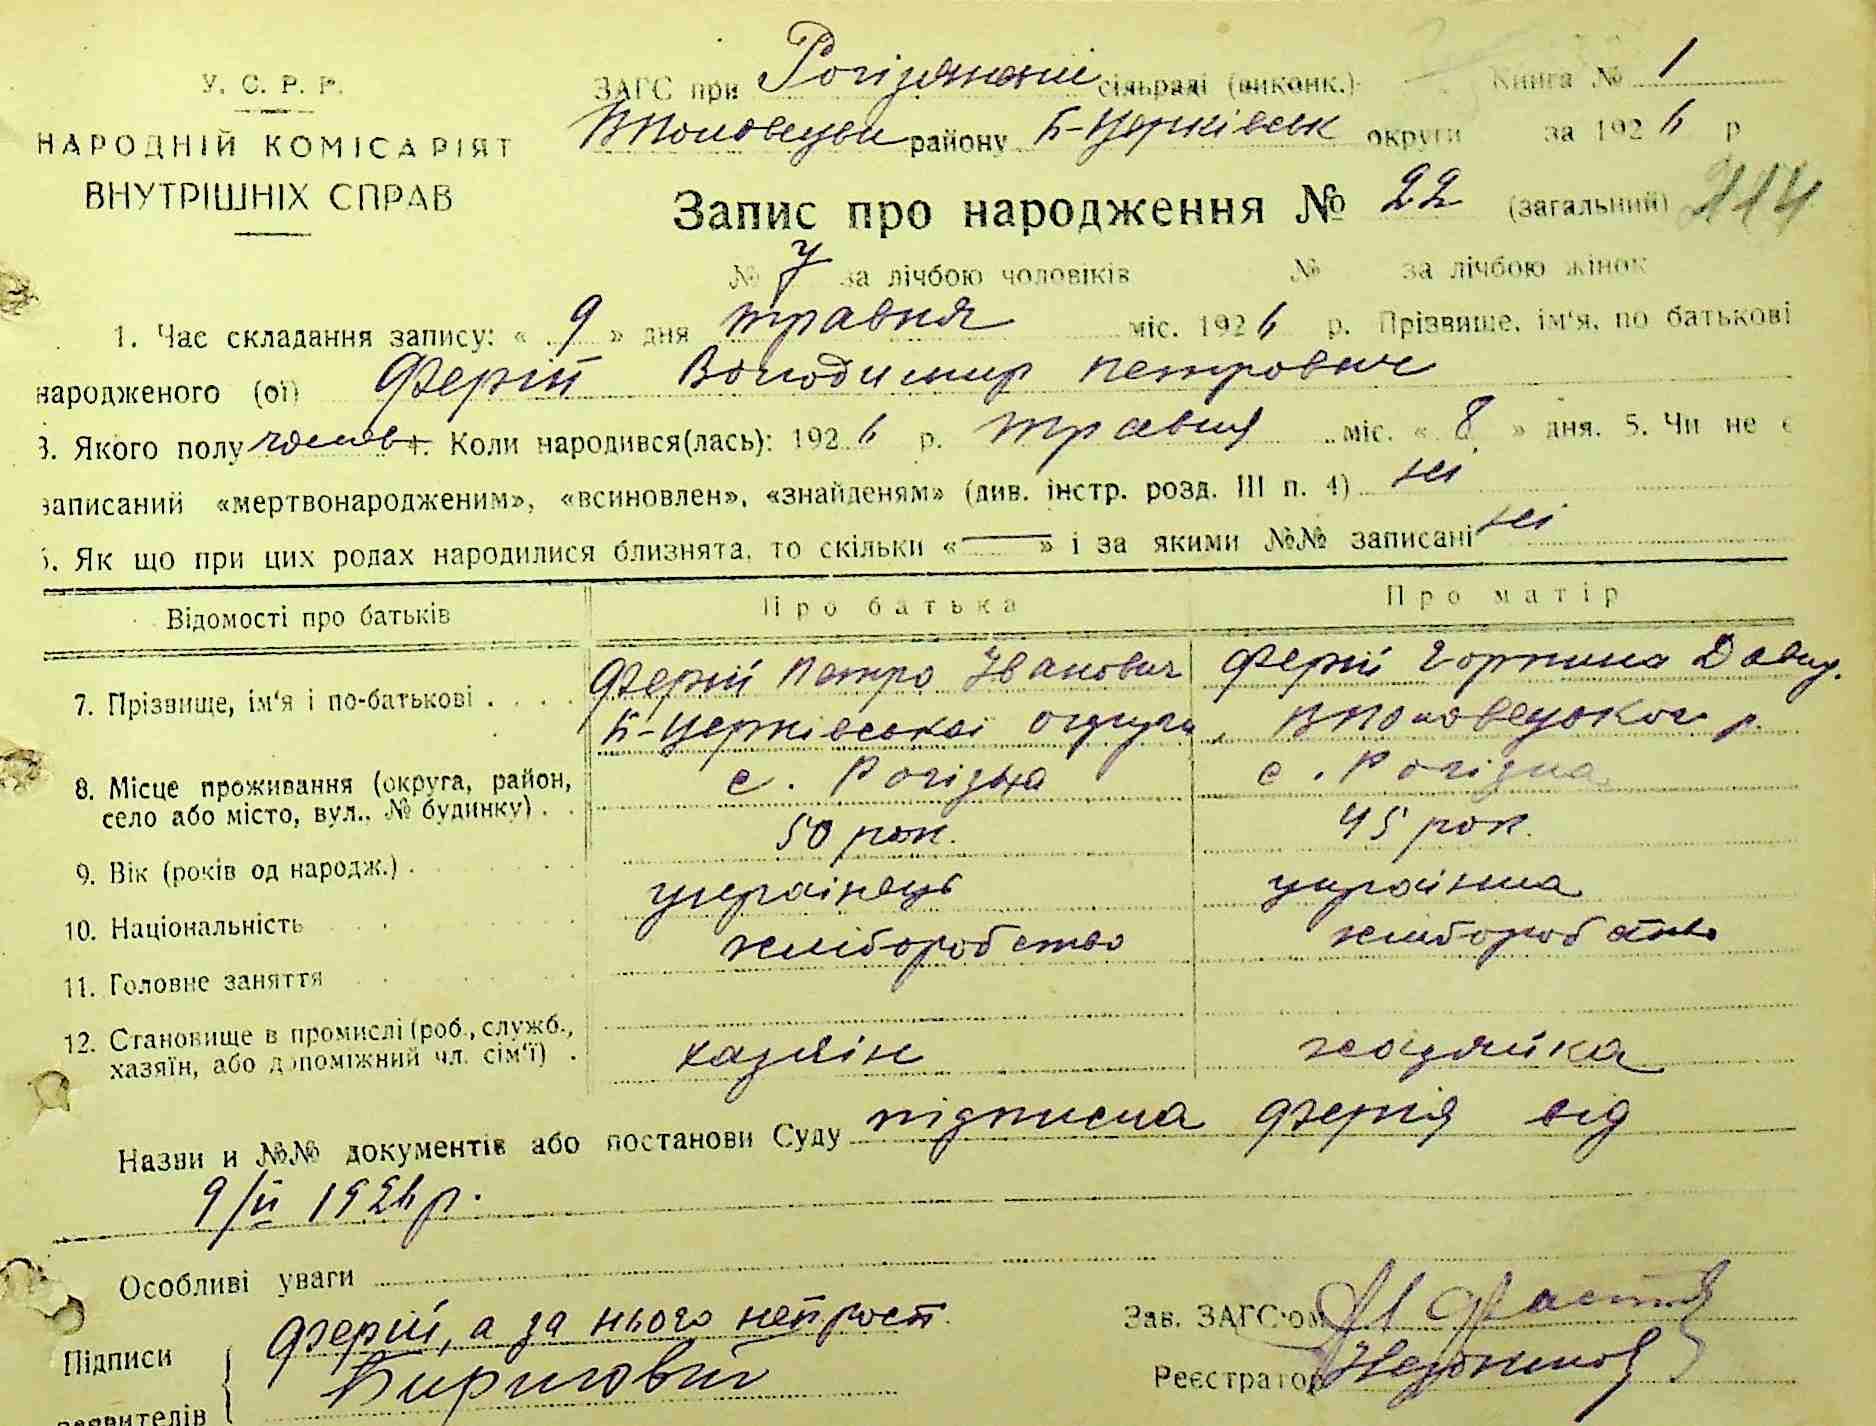 У. С. Р. Р.
НАРОДНІЙ КОМІСАРІЯТ
ВНУТРІШНІХ СПРАВ
ЗАГС при Рогізянській сільраді (виконк.) Книга № 1
району Б-Церківськ округи за 1926 р
Запис про народження № 22 (загальний) 114
№ 7 за лічбою чоловіків № за лічбою жінок
1. Час складання запису: « 9 » дня травня міс. 1926 р. Прізвище, ім'я, по батькові
народженого (ої) Ферій Володимир Петрович
3. Якого полу чолов. 4. Коли народився(лась): 1926 р. травня міс. « 8 » дня. 5. Чи не є
записаний «мертвонародженим», «всиновлен», «знайденям» (див. інстр. розд. III п. 4) ні
6. Як що при цих родах народилися близнята, то скільки «—» і за якими №№ записані ні
Відомості про батьків Про батька Про матір
7. Прізвище, ім'я і по-батькові Ферій Петро Іванович Ферій Горпина Давид.
Б-Церківської округи
8. Місце проживання (округа, район,
село або місто, вул., № будинку) с. Рогізна с. Рогізна
9. Вік (років од народж.) 50 рок. 45 рок.
10. Національність українець українка
11. Головне заняття хліборобство хліборобство
12. Становище в промислі (роб., служб.,
хазяїн, або допоміжний чл. сім'ї) хазяїн хазяйка
Назви и №№ документів або постанови Суду підписка Ферія від
9/V 1926 р.
Особливі уваги
Підписи Ферій, а за нього непрост Зав. ЗАГС'ом
Реєстратор
заявителів